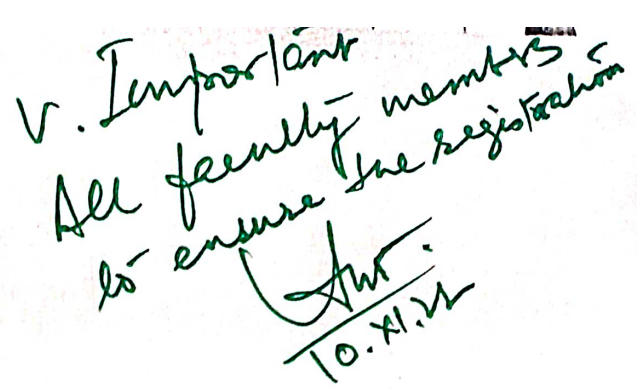 V. Important
All faculty members
to ensure the registration
10.XI.22